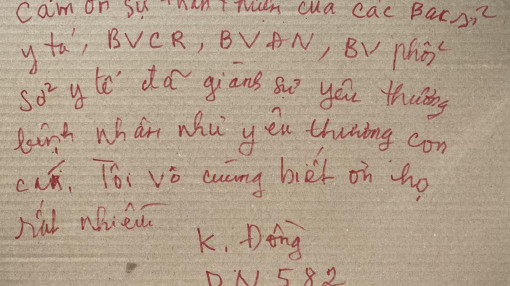 Cảm ơn sự thân thiện của các Bác sỉ
y tá, BVCR, BVAN, BV phổi
Sở y tế đã giành sự yêu thương
bệnh nhân như yêu thương con
cái. Tôi vô cùng biết ơn họ
rất nhiều
K. Đông
DN 582